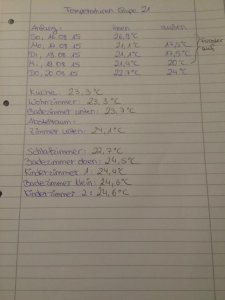 Temperaturen Gruppe 21
Anfang: innen außen
So, 16.08.15 26,8°C
Mo, 17.08.15 21,1°C 17,5°C Fenster
Di, 18.08.15 21,1°C 17,5°C auf
Mi, 19.08.15 21,4°C 20°C
Do, 20.08.15 22,7°C 24°C
Küche: 23,3°C
Wohnzimmer: 23,3°C
Badezimmer unten: 23,7°C
Abstellraum:
Zimmer unten: 24,1°C
Schlafzimmer: 22,7°C
Badezimmer oben: 24,5°C
Kinderzimmer 1: 24,4°C
Badezimmer klein: 24,6°C
Kinderzimmer 2: 24,6°C